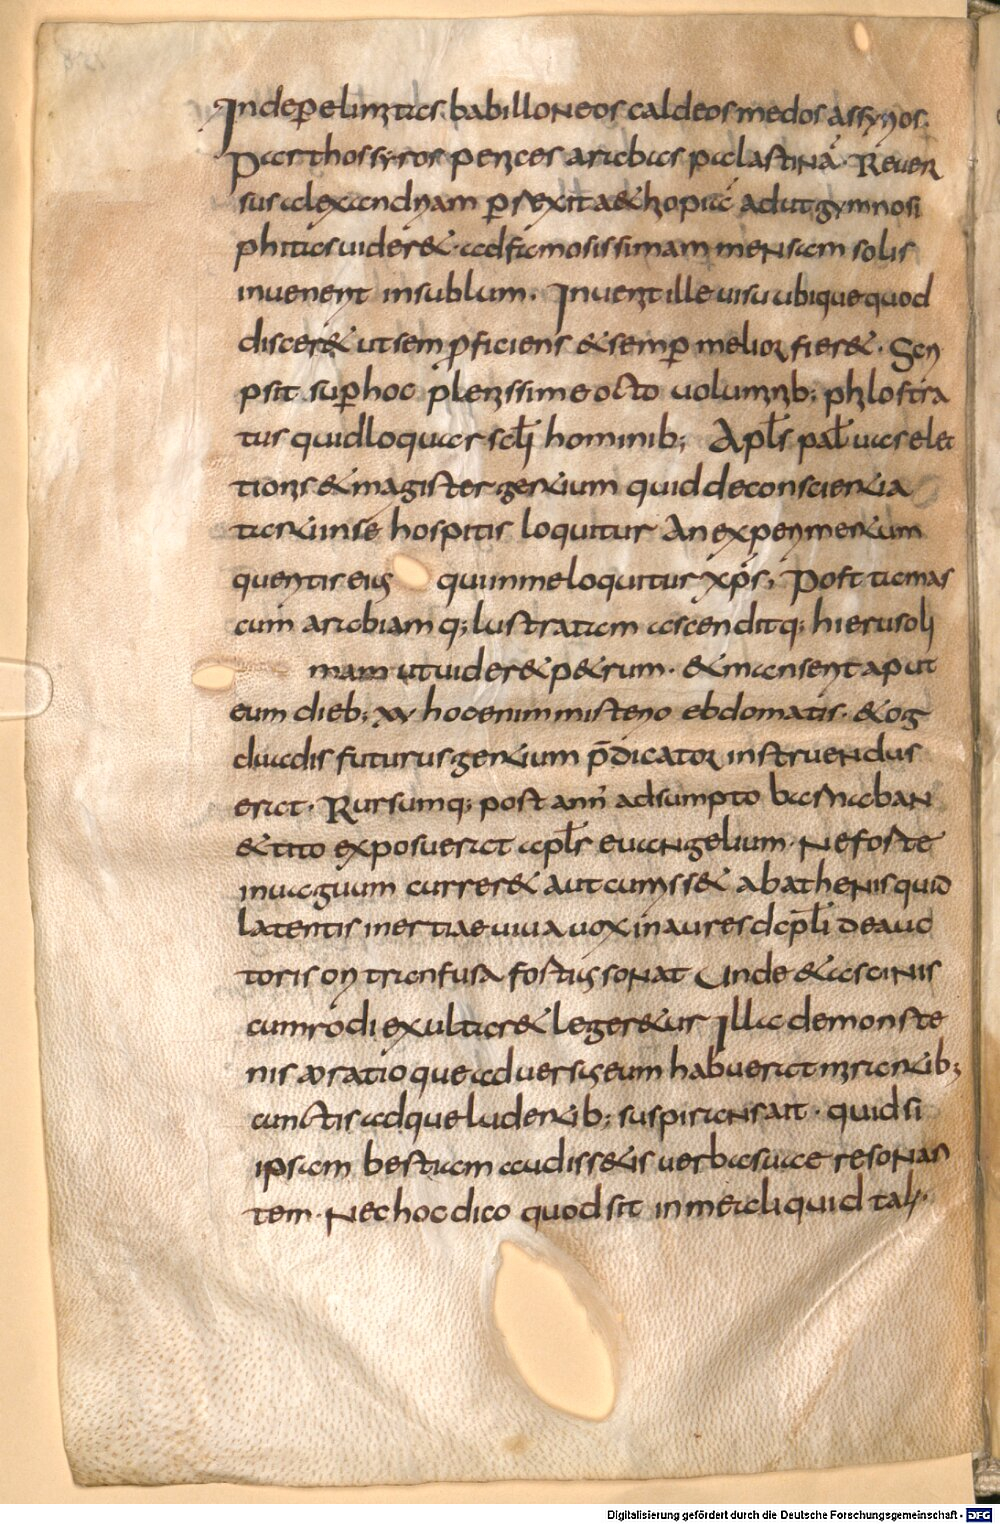 Inde p elimitas babilloneos caldeos medos assyrios
Parthos syros penices arabas palastinā Rever
sus alexandriam prexit aethopiā ad ut gymnosi
phitas videret ad famosissimam mensam solis
invenerit in sublum. Invenit ille visu ubique quod
disceret ut sem pficiens & semp melior fieret. Scri
psit sup hoc plenissime octo voluminib; philostra
tus quid loquar scli hominib; Apls pał vas elec
tionis & magister gentium qui de conscientia
tanti in se hospitis loquitur An experimentum
queritis eius qui in me loquitur xps. Post tamas
cum arabiam q; lustratam ascendit q; hierusoli
mam ut videret petrum. & manserit aput
eum dieb; xv hoc enim misterio ebdomatis. & og
duadis futurus gentium pdicator instruendus
erat. Rursumq; post ann̄ adsumpto barnaban
& tito exposuerat apls evangelium. Ne foste
in vaguum curreret aut cucurrisset abathenis quid
latentis inertiae viva vox in aures dcpli de auc
toris ori transfusa fostius sonat Unde & ascinis
cum rodi exultaret legeretur Illa demonste
nis oratio que adversus eum habuerat mirantib;
cunctis adque ludentib; suspirans ait. quid si
ipsam bestiam audissetis verba sua e resonan
tem. Nec hoc dico quod sit in me aliquid tali.
Digitalisierung gefördert durch die Deutsche Forschungsgemeinschaft - DFG